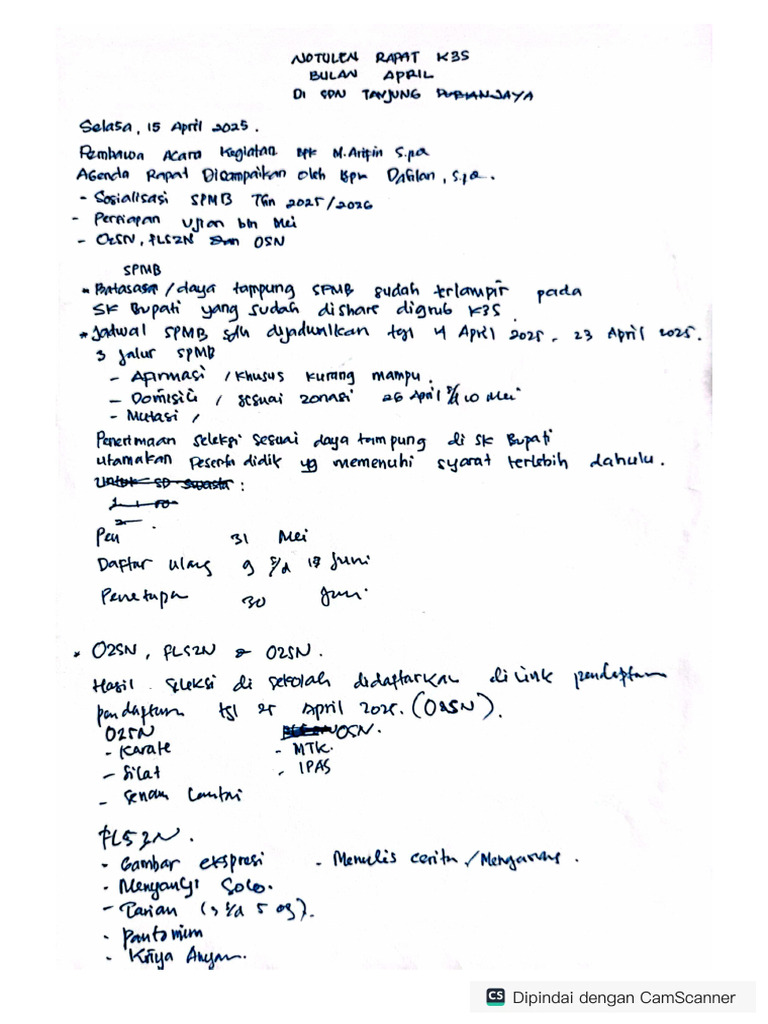 NOTULEN RAPAT K3S
BULAN APRIL
DI SDN TANJUNG
Selasa, 15 April 2025.
Pembawa Acara Kegiatan Bpk M. Aripin S.pd
Agenda Rapat Disampaikan oleh Bpk Dafilan, S.pd.
- Sosialisasi SPMB Thn 2025/2026
- Persiapan Ujian bln Mei
- O2SN, FLS2N dan OSN
SPMB
* Batasan / daya tampung SPMB sudah terlampir pada
SK Bupati yang sudah dishare digrub K3S.
* Jadwal SPMB sdh dijadwalkan tgl 4 April 2025 - 23 April 2025.
3 Jalur SPMB
- Afirmasi / Khusus kurang mampu.
- Domisili / sesuai zonasi 26 April s/d 10 Mei
- Mutasi /
Penerimaan seleksi sesuai daya tampung di SK Bupati
utamakan peserta didik yg memenuhi syarat terlebih dahulu.
Untuk SD Swasta :
Pen 31 Mei
Daftar ulang 9 s/d 13 Juni
Penetapan 30 Juni
* O2SN, FLS2N & O2SN.
Hasil seleksi di sekolah didaftarkan di link pendaftaran
pendaftaran tgl 25 April 2025. (O2SN).
O2SN OSN.
- Karate - MTK.
- Silat - IPAS
- Senam Lantai
FLS3N.
- Gambar ekspresi - Menulis cerita / Mengarang.
- Menyanyi Solo.
- Tarian (3 s/d 5 og).
- Pantomim
- Kriya Anyam.
CS Dipindai dengan CamScanner